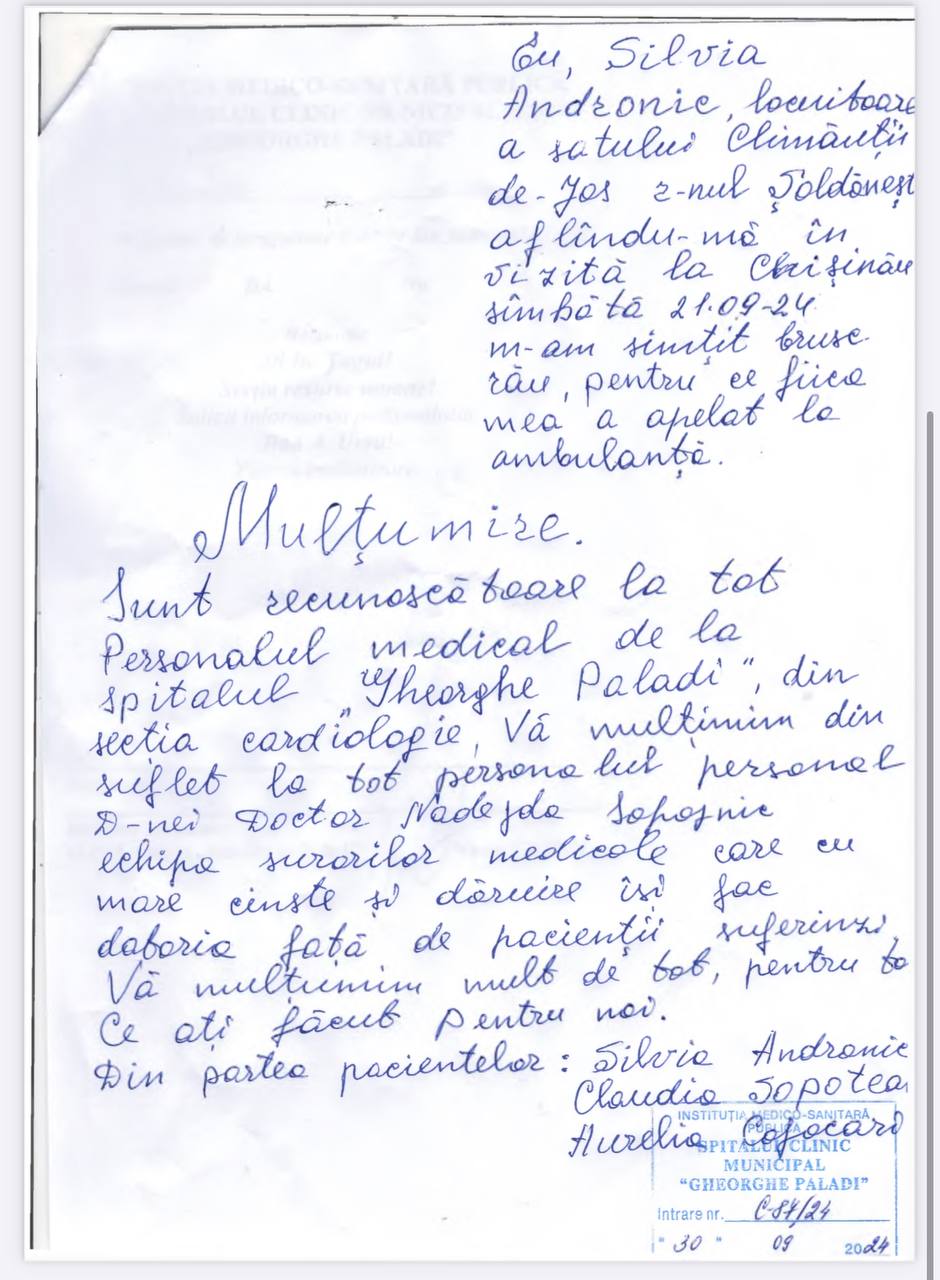 Eu, Silvia
Andronic, locuitoare
a satului Climăuții
de-Jos r-nul Șoldănești
aflîndu-mă în
vizită la Chișinău
sîmbătă 21.09-24
m-am simțit brusc
rău, pentru ce fiica
mea a apelat la
ambulanță.
Mulțumire.
Sunt recunoscătoare la tot
Personalul medical de la
spitalul „Gheorghe Paladi", din
secția cardiologie, Vă mulțimim din
suflet la tot personalul personal
D-nei Doctor Nadejda Sapojnic
echipa surorilor medicale care cu
mare cinste și dăruire își fac
datoria față de pacienții suferinzi
Vă mulțumim mult de tot, pentru to
Ce ați făcut pentru noi.
Din partea pacientelor: Silvia Andronic
Claudia Sopotean
Aurelia Cojocari
INSTITUȚIA MEDICO-SANITARĂ
PUBLICĂ
SPITALUL CLINIC
MUNICIPAL
"GHEORGHE PALADI"
Intrare nr. C-84/24
" 30 " 09 2024